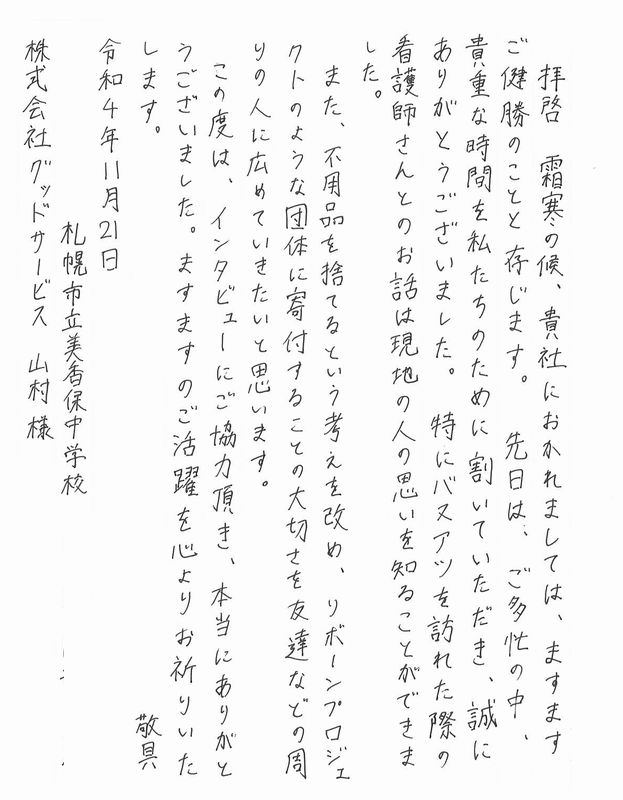 拝啓　霜寒の候、貴社におかれましては、ますます
ご健勝のことと存じます。　先日は、ご多忙の中、
貴重な時間を私たちのために割いていただき、誠に
ありがとうございました。　特にバヌアツを訪れた際の
看護師さんとのお話は現地の人の思いを知ることができま
した。
また、不用品を捨てるという考えを改め、リボーンプロジェ
クトのような団体に寄付することの大切さを友達などの周
りの人に広めていきたいと思います。
この度は、インタビューにご協力頂き、本当にありがと
うございました。ますますのご活躍を心よりお祈りいた
します。
敬具
令和4年11月21日
札幌市立美香保中学校
株式会社グッドサービス　山村様